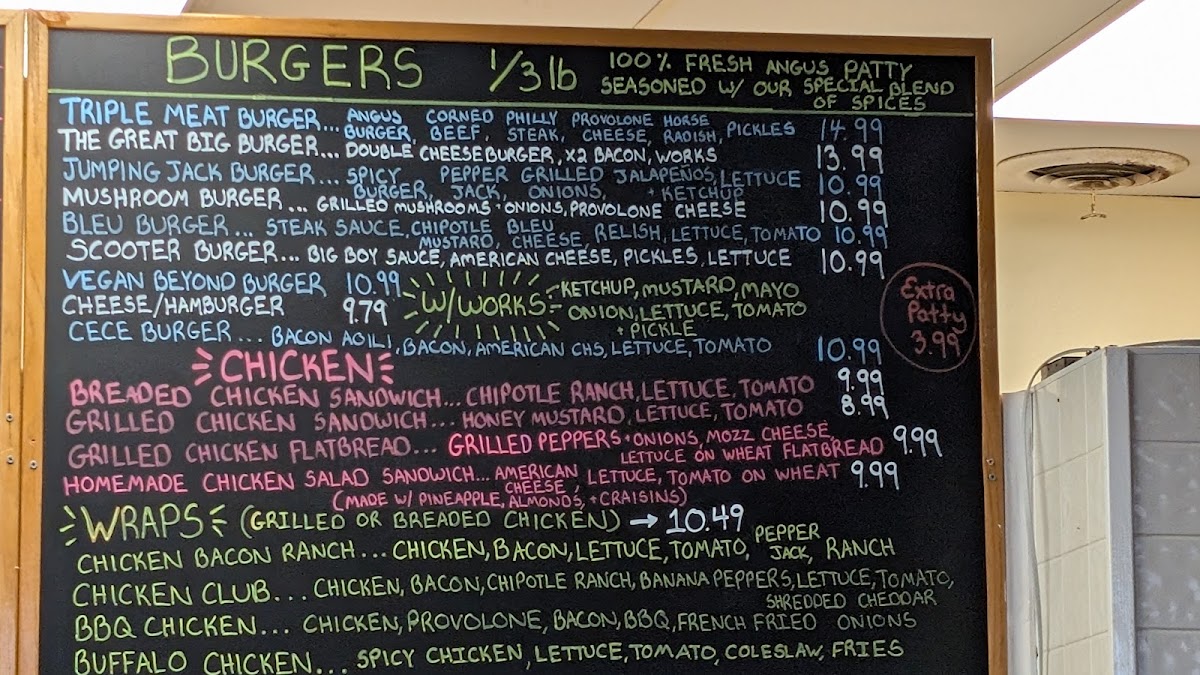 BURGERS 1/3 lb 100% FRESH ANGUS PATTY
SEASONED W/ OUR SPECIAL BLEND
OF SPICES
TRIPLE MEAT BURGER... ANGUS BURGER, CORNED BEEF, PHILLY STEAK, PROVOLONE CHEESE, HORSE RADISH, PICKLES 14.99
THE GREAT BIG BURGER... DOUBLE CHEESEBURGER, X2 BACON, WORKS 13.99
JUMPING JACK BURGER... SPICY BURGER, PEPPER JACK, GRILLED ONIONS, JALAPEÑOS, LETTUCE + KETCHUP 10.99
MUSHROOM BURGER... GRILLED MUSHROOMS + ONIONS, PROVOLONE CHEESE 10.99
BLEU BURGER... STEAK SAUCE, CHIPOTLE MUSTARD, BLEU CHEESE, RELISH, LETTUCE, TOMATO 10.99
SCOOTER BURGER... BIG BOY SAUCE, AMERICAN CHEESE, PICKLES, LETTUCE 10.99
VEGAN BEYOND BURGER 10.99
CHEESE/HAMBURGER 9.79
W/WORKS- KETCHUP, MUSTARD, MAYO
ONION, LETTUCE, TOMATO
+ PICKLE
Extra
Patty
3.99
CECE BURGER... BACON AOILI, BACON, AMERICAN CHS, LETTUCE, TOMATO 10.99
CHICKEN
BREADED CHICKEN SANDWICH... CHIPOTLE RANCH, LETTUCE, TOMATO 9.99
GRILLED CHICKEN SANDWICH... HONEY MUSTARD, LETTUCE, TOMATO 8.99
GRILLED CHICKEN FLATBREAD... GRILLED PEPPERS + ONIONS, MOZZ CHEESE, 9.99
LETTUCE ON WHEAT FLATBREAD
HOMEMADE CHICKEN SALAD SANDWICH... AMERICAN CHEESE, LETTUCE, TOMATO ON WHEAT 9.99
(MADE W/ PINEAPPLE, ALMONDS, + CRAISINS)
WRAPS (GRILLED OR BREADED CHICKEN) → 10.49
CHICKEN BACON RANCH... CHICKEN, BACON, LETTUCE, TOMATO, PEPPER JACK, RANCH
CHICKEN CLUB... CHICKEN, BACON, CHIPOTLE RANCH, BANANA PEPPERS, LETTUCE, TOMATO,
SHREDDED CHEDDAR
BBQ CHICKEN... CHICKEN, PROVOLONE, BACON, BBQ, FRENCH FRIED ONIONS
BUFFALO CHICKEN... SPICY CHICKEN, LETTUCE, TOMATO, COLESLAW, FRIES